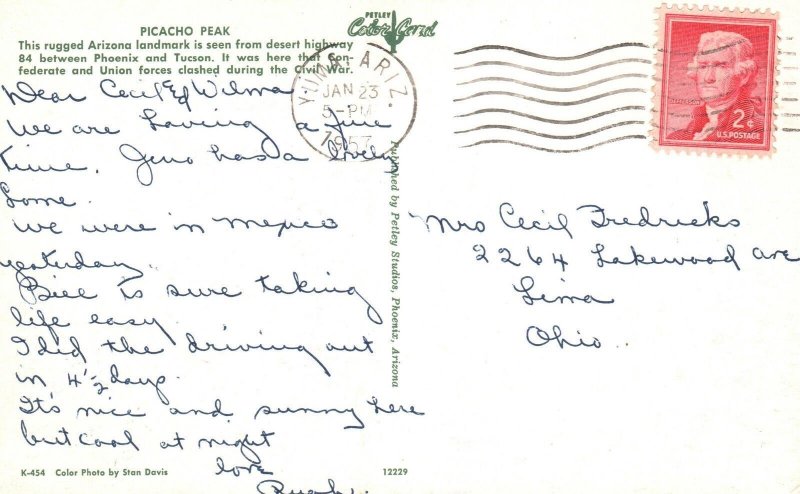 PICACHO PEAK
This rugged Arizona landmark is seen from desert highway
84 between Phoenix and Tucson. It was here that Con-
federate and Union forces clashed during the Civil War.
PETLEY
Color Card
YUMA, ARIZ.
JAN 23
5-PM
1957
JEFFERSON
2¢
U.S. POSTAGE
Dear Cecil & Wilma
We are having a fine
time. has a lovely
home.
We were in Mexico
yesterday.
Bill is sure taking
life easy
I did the driving out
in 4½ days.
It's nice and sunny here
but cool at night
love
Published by Petley Studios, Phoenix, Arizona
Mrs Cecil Fredricks
2264 Lakewood Ave
Lima
Ohio..
K-454 Color Photo by Stan Davis
12229